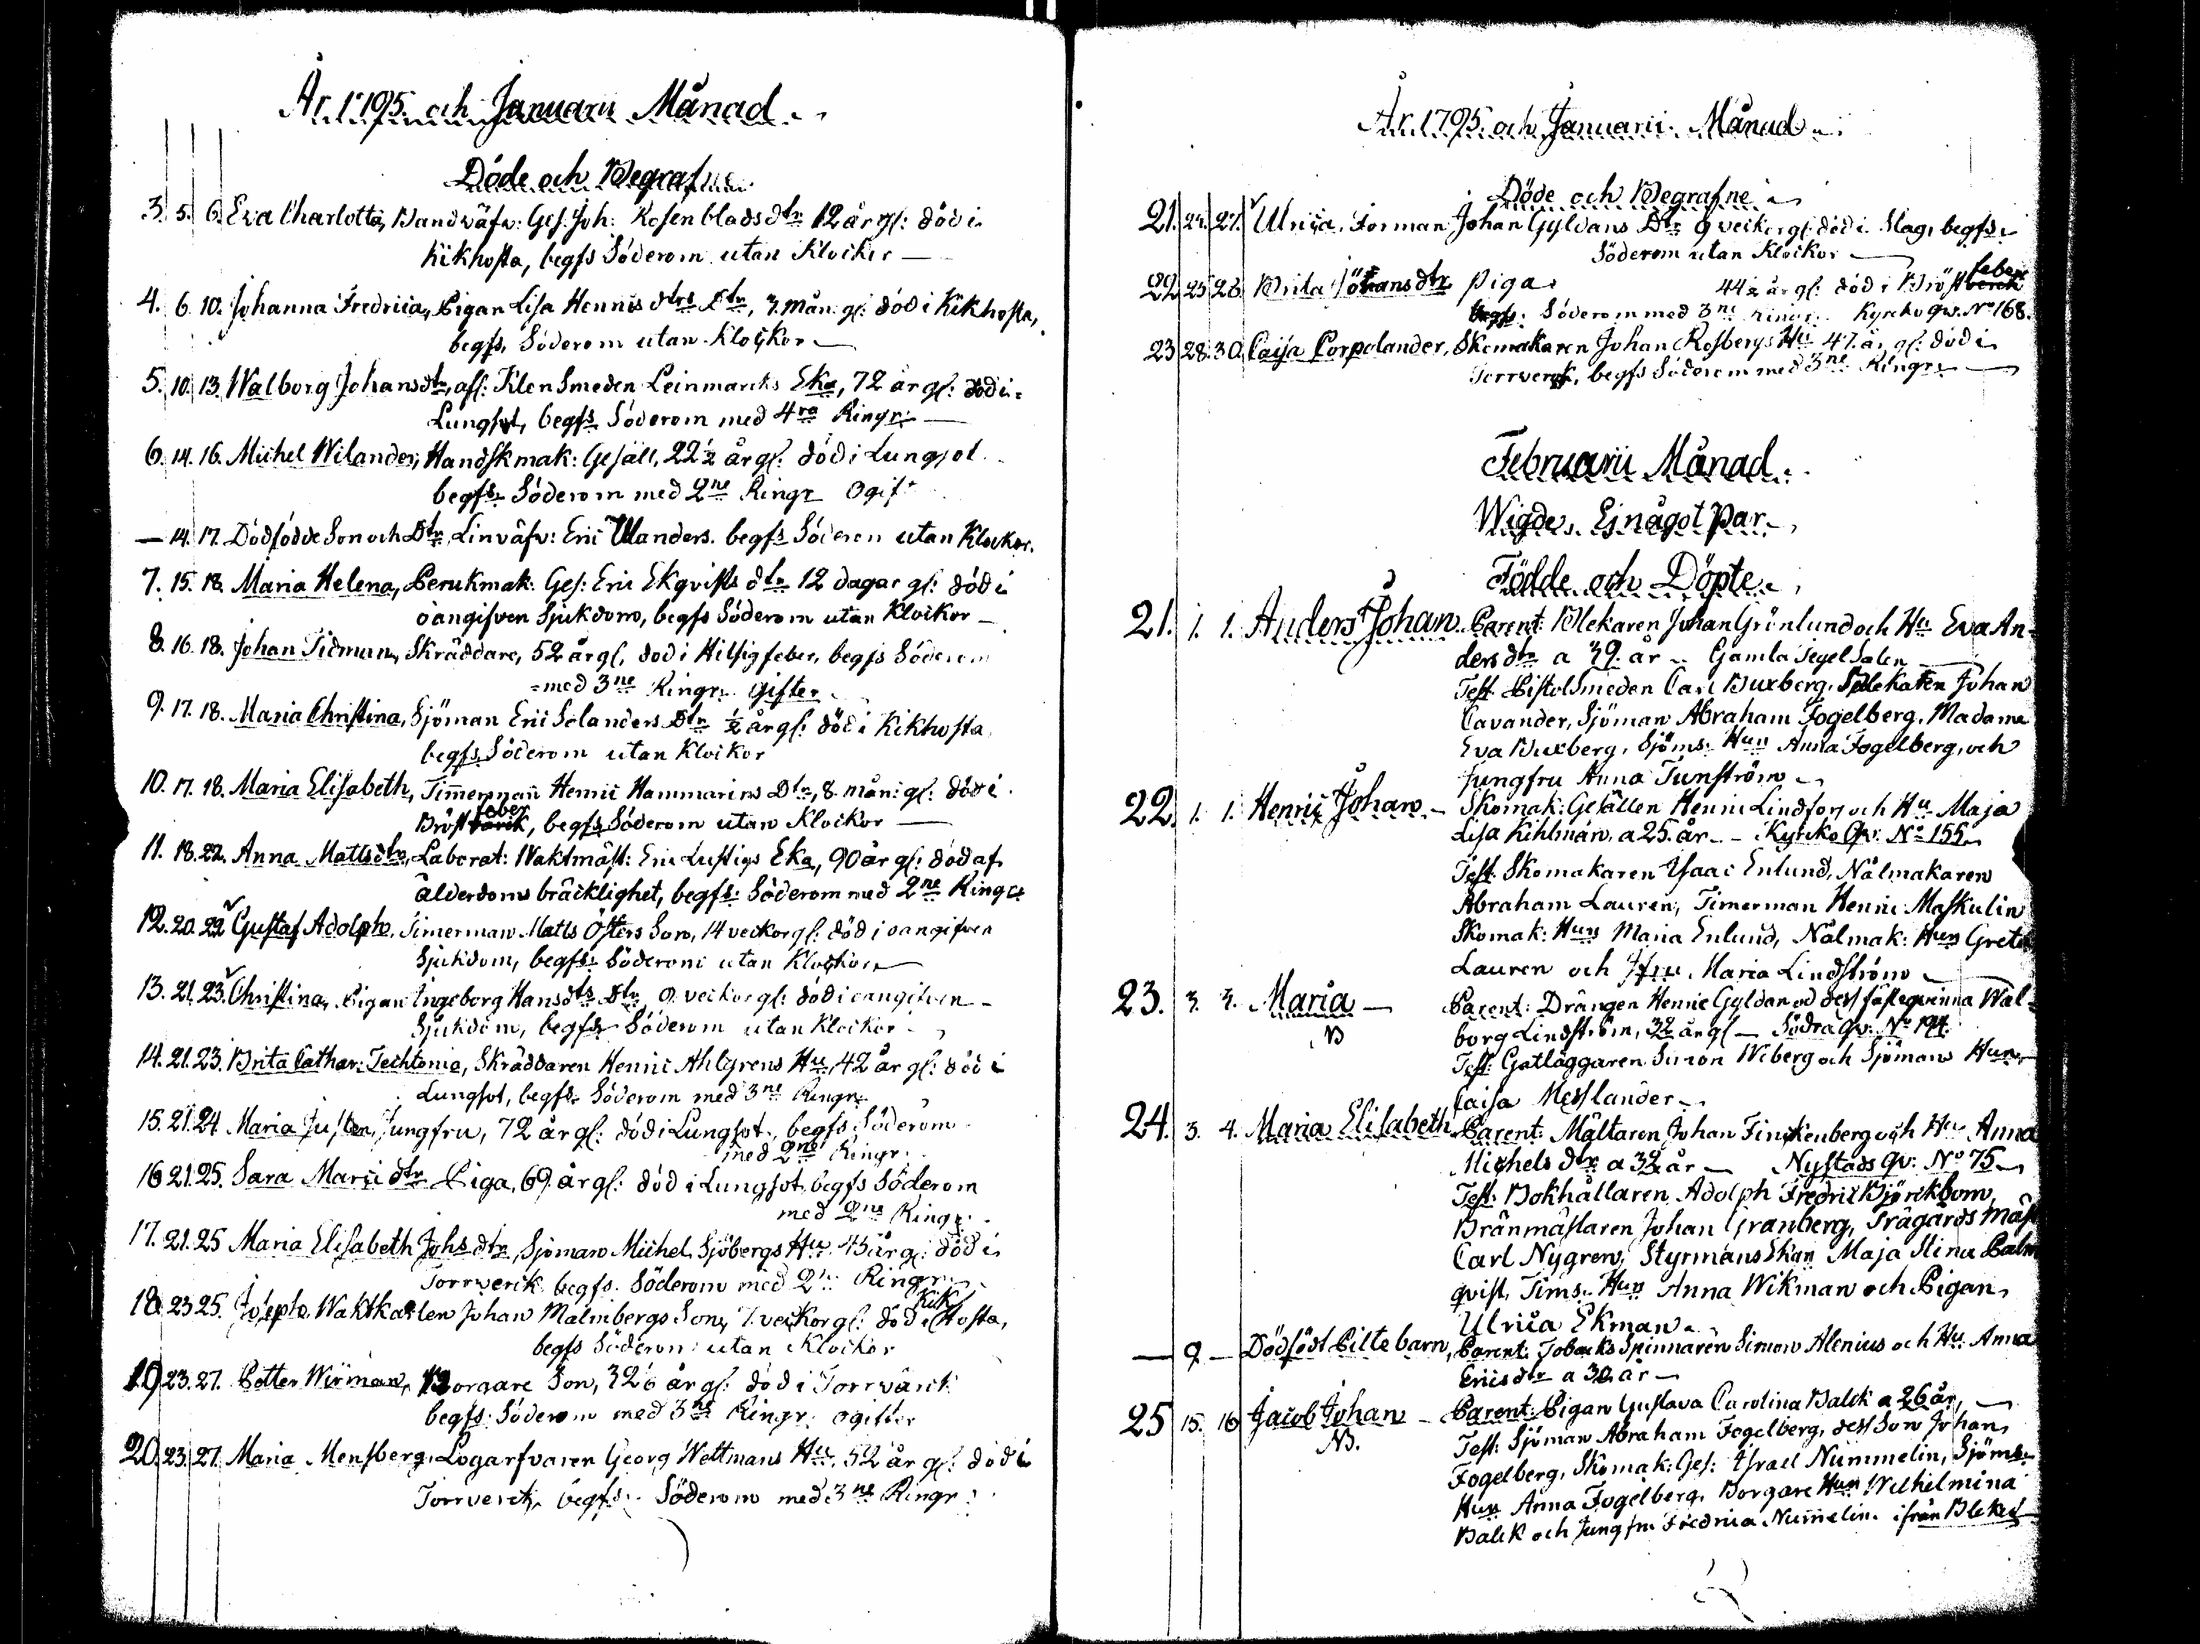 År 1795. och Januarii Månad.
Döde och Begrafne
3. 5. 6. Eva Charlotta, Bandväfv: Ges: Joh: Rosenblads dtr 12 år gl: död i
Kikhosta, begfs Söderom utan Klockor —
4. 6. 10. Johanna Fredrica, Pigan Lisa Hennis dtrs Dtr, 3. mån. gl: död i Kikhosta,
begfs, Söderom utan Klockor —
5. 10. 13. Walborg Johansdtr, afl: Klen Smeden Leinmarcks Eka, 72 år gl: död i
Lungsot, begfs Söderom med 4ra Ringr: —
6. 14. 16. Michel Wilander, Handskmak: Gesäll, 22½ år gl: död i Lungsot
begfs Söderom med 2ne Ringr Ogift
— 14. 17. Dödfödde Son och Dtr, Linväfv: Eric Ulanders. begfs Söderom utan Klockor.
7. 15. 18. Maria Helena, Perukmak: Ges: Eric Ekqvists dtr 12 dagar gl: död i
oangifven Sjukdom, begfs Söderom utan Klockor —
8. 16. 18. Johan Tidman, Skräddare, 52 år gl, död i Hitsig feber, begfs Söderom
= med 3ne Ringr. Gifter
9. 17. 18. Maria Christina, Sjöman Eric Solanders Dtr ½ år gl: död i Kikhosta,
begfs Söderom utan Klockor
10. 17. 18. Maria Elisabeth, Timerman Henric Hammarins Dtr, 8. mån: gl: död i
feber
Bröst, begfs Söderom utan Klockor —
11. 18. 22. Anna Mattsdtr, Laborat: Waktmäst: Eric Lustigs Eka, 90 år gl: död af
ålderdoms bräcklighet, begfs: Söderom med 2ne Ringr
12. 20. 22. Gustaf Adolph, Timerman Matts Östers Son, 14 veckor gl: död i oangifven
Sjukdom, begfs: Söderom utan Klockor —
13. 21. 23. Christina, Pigan Ingeborg Hansdts Dtr, 9 veckor gl: död i oangifven
Sjukdom, begfs Söderom utan Klockor
14. 21. 23. Brita Cathar: Techtonia, Skräddaren Henric Ahlgrens Hu, 42 år gl: död i
Lungsot, begfs Söderom med 3ne Ringr
15. 21. 24 Maria Justen, Jungfru, 72 år gl: död i Lungsot, begfs Söderom
med 2ne Ringr.
16 21. 25. Sara Marcidtr Piga, 69 år gl: död i Lungsot, begfs Söderom
med 2ne Ringr.
17. 21. 25 Maria Elisabeth Johsdtr, Sjöman Michel Sjöbergs Hu. 45 år gl: död i
Torrwerck begfs. Söderom med 2ne Ringr.
Kik
18 23 25. Joseph, Waktkarlen Johan Malmbergs Son, 7. veckor gl: död i Hosta,
begfs Söderom utan Klockor
19 23. 27. Petter Wirman, Borgare Son, 32 år gl: död i Torrvärck
begfs: Söderom med 3ne Ringr. ogifter
20. 23. 27. Maria Mensberg, Logarfvaren Georg Wettmans Hu, 52 år gl: död i
Torrverck, begfs: Söderom med 3ne Ringr:
År 1795. och Januarii Månad
Döde och Begrafne
21. 24. 27. Ulrica, Forman Johan Gyldans Dtr 9 veckor gl: död i Slag, begfs
Söderom utan Klockor —
feber
22 25 28 Brita Johansdtr Piga 44½ år gl: död i Bröst
begfs: Söderom med 3ne ringr: Kyrcko Qv. No 168.
23 28. 30. Caisa Corpolander, Skomakaren Johan Rosbergs Hu 47. år gl: död i
Torrverck, begfs Söderom med 3ne Ringr: —
Februarii Månad.
Wigde. Ej något Par.
Födde och Döpte.
21. 1. 1. Anders Johan. Parent: Blekaren Johan Grönlund och Hu Eva An-
dersdtr a 39. år — Gamla Tegel Salen
Test: PistolSmeden Carl Buxberg, Blekaren Johan
Cavander, Sjöman Abraham Fogelberg, Madame
Eva Buxberg, Sjöms: Hun Anna Fogelberg, och
Jungfru Anna Tunström
22. 1. 1. Henric Johan. — Skomak: Gesällen Henric Lindfors och Hu Maja
Lisa Kihlman, a 25. år — Kyrcko Qv: No 155.
Test: Skomakaren Isaac Enlund, Nålmakaren
Abraham Lauren, Timerman Henric Maskulin
Skomak: Hun Maria Enlund, Nålmak: Hun Greta
Lauren och Jfru Maria Lindström —
23. 3. 3. Maria — Parent: Drängen Henric Gyldan och dess fästeqvinna Wal-
borg Lindström, 32 år gl — Södra Qv: No 194.
NB
Test: Gatläggaren Simon Wiberg och Sjömans Hun
Caisa Messlander
24. 3. 4. Maria Elisabeth Parent: Mältaren Johan Finckenberg och Hu Anna
Michelsdtr a 32 år — Nystads Qv: No 75 —
Test: Bokhållaren Adolph Fredric Björckbom,
Bränmästaren Johan Granberg, Trägårds Mäst
Carl Nygren, Styrmanskan Maja Stina Palm
qvist, Tims: Hun Anna Wikman och Pigan
Ulrica Ekman.
— 9 — Dödfödt Pilte barn, Parent: Tobacks Spinnaren Simon Alenius och Hu Anna
Ericsdtr a 30 år —
25 15. 16 Jacob Johan — Parent: Pigan Gustava Carolina Balck a 26 år, —
NB.
Test: Sjöman Abraham Fogelberg, dess Son Johan
Fogelberg, Skomak: Ges: Israel Nummelin, Sjöms:
Hun Anna Fogelberg, Borgare Hun Wilhelmina
Balck och Jungfru Fredrica Numelin. ifrån Bleket